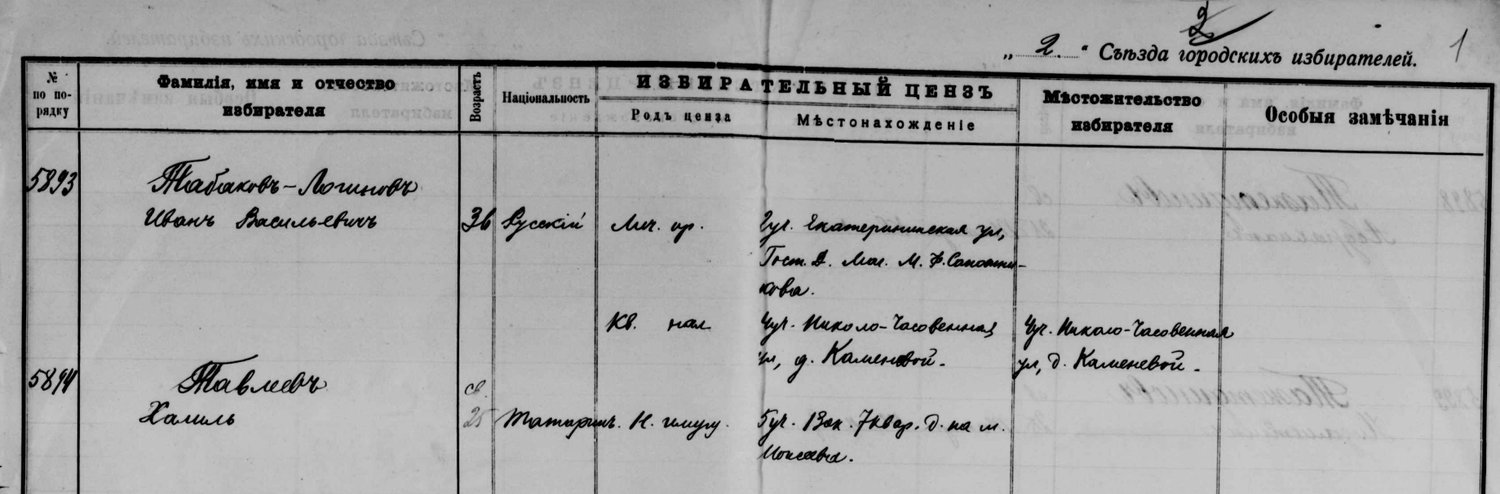 2
„ 2. “ Съѣзда городскихъ избирателей. 1
№ по по-рядку
Фамилія, имя и отчество
избирателя
Возрастъ
Національность
ИЗБИРАТЕЛЬНЫЙ ЦЕНЗЪ
Родъ ценза
Мѣстонахожденіе
Мѣстожительство
избирателя
Особыя замѣчанія
5893 Табаковъ-Логиновъ
Иванъ Васильевичъ 36 Русскій Лич. пр. уч. Екатерининская ул,
Гост. Д. М. Ф. Сапожни-
кова.
Кв. нал. уч. Николо-Часовенная уч. Николо-Часовенная
ул, д. Каменевой. ул, д. Каменевой.
5894 Тавлеевъ св.
Халиль 25 Татаринъ. Н. имущ. 5 уч. 7 квар. д. на м.